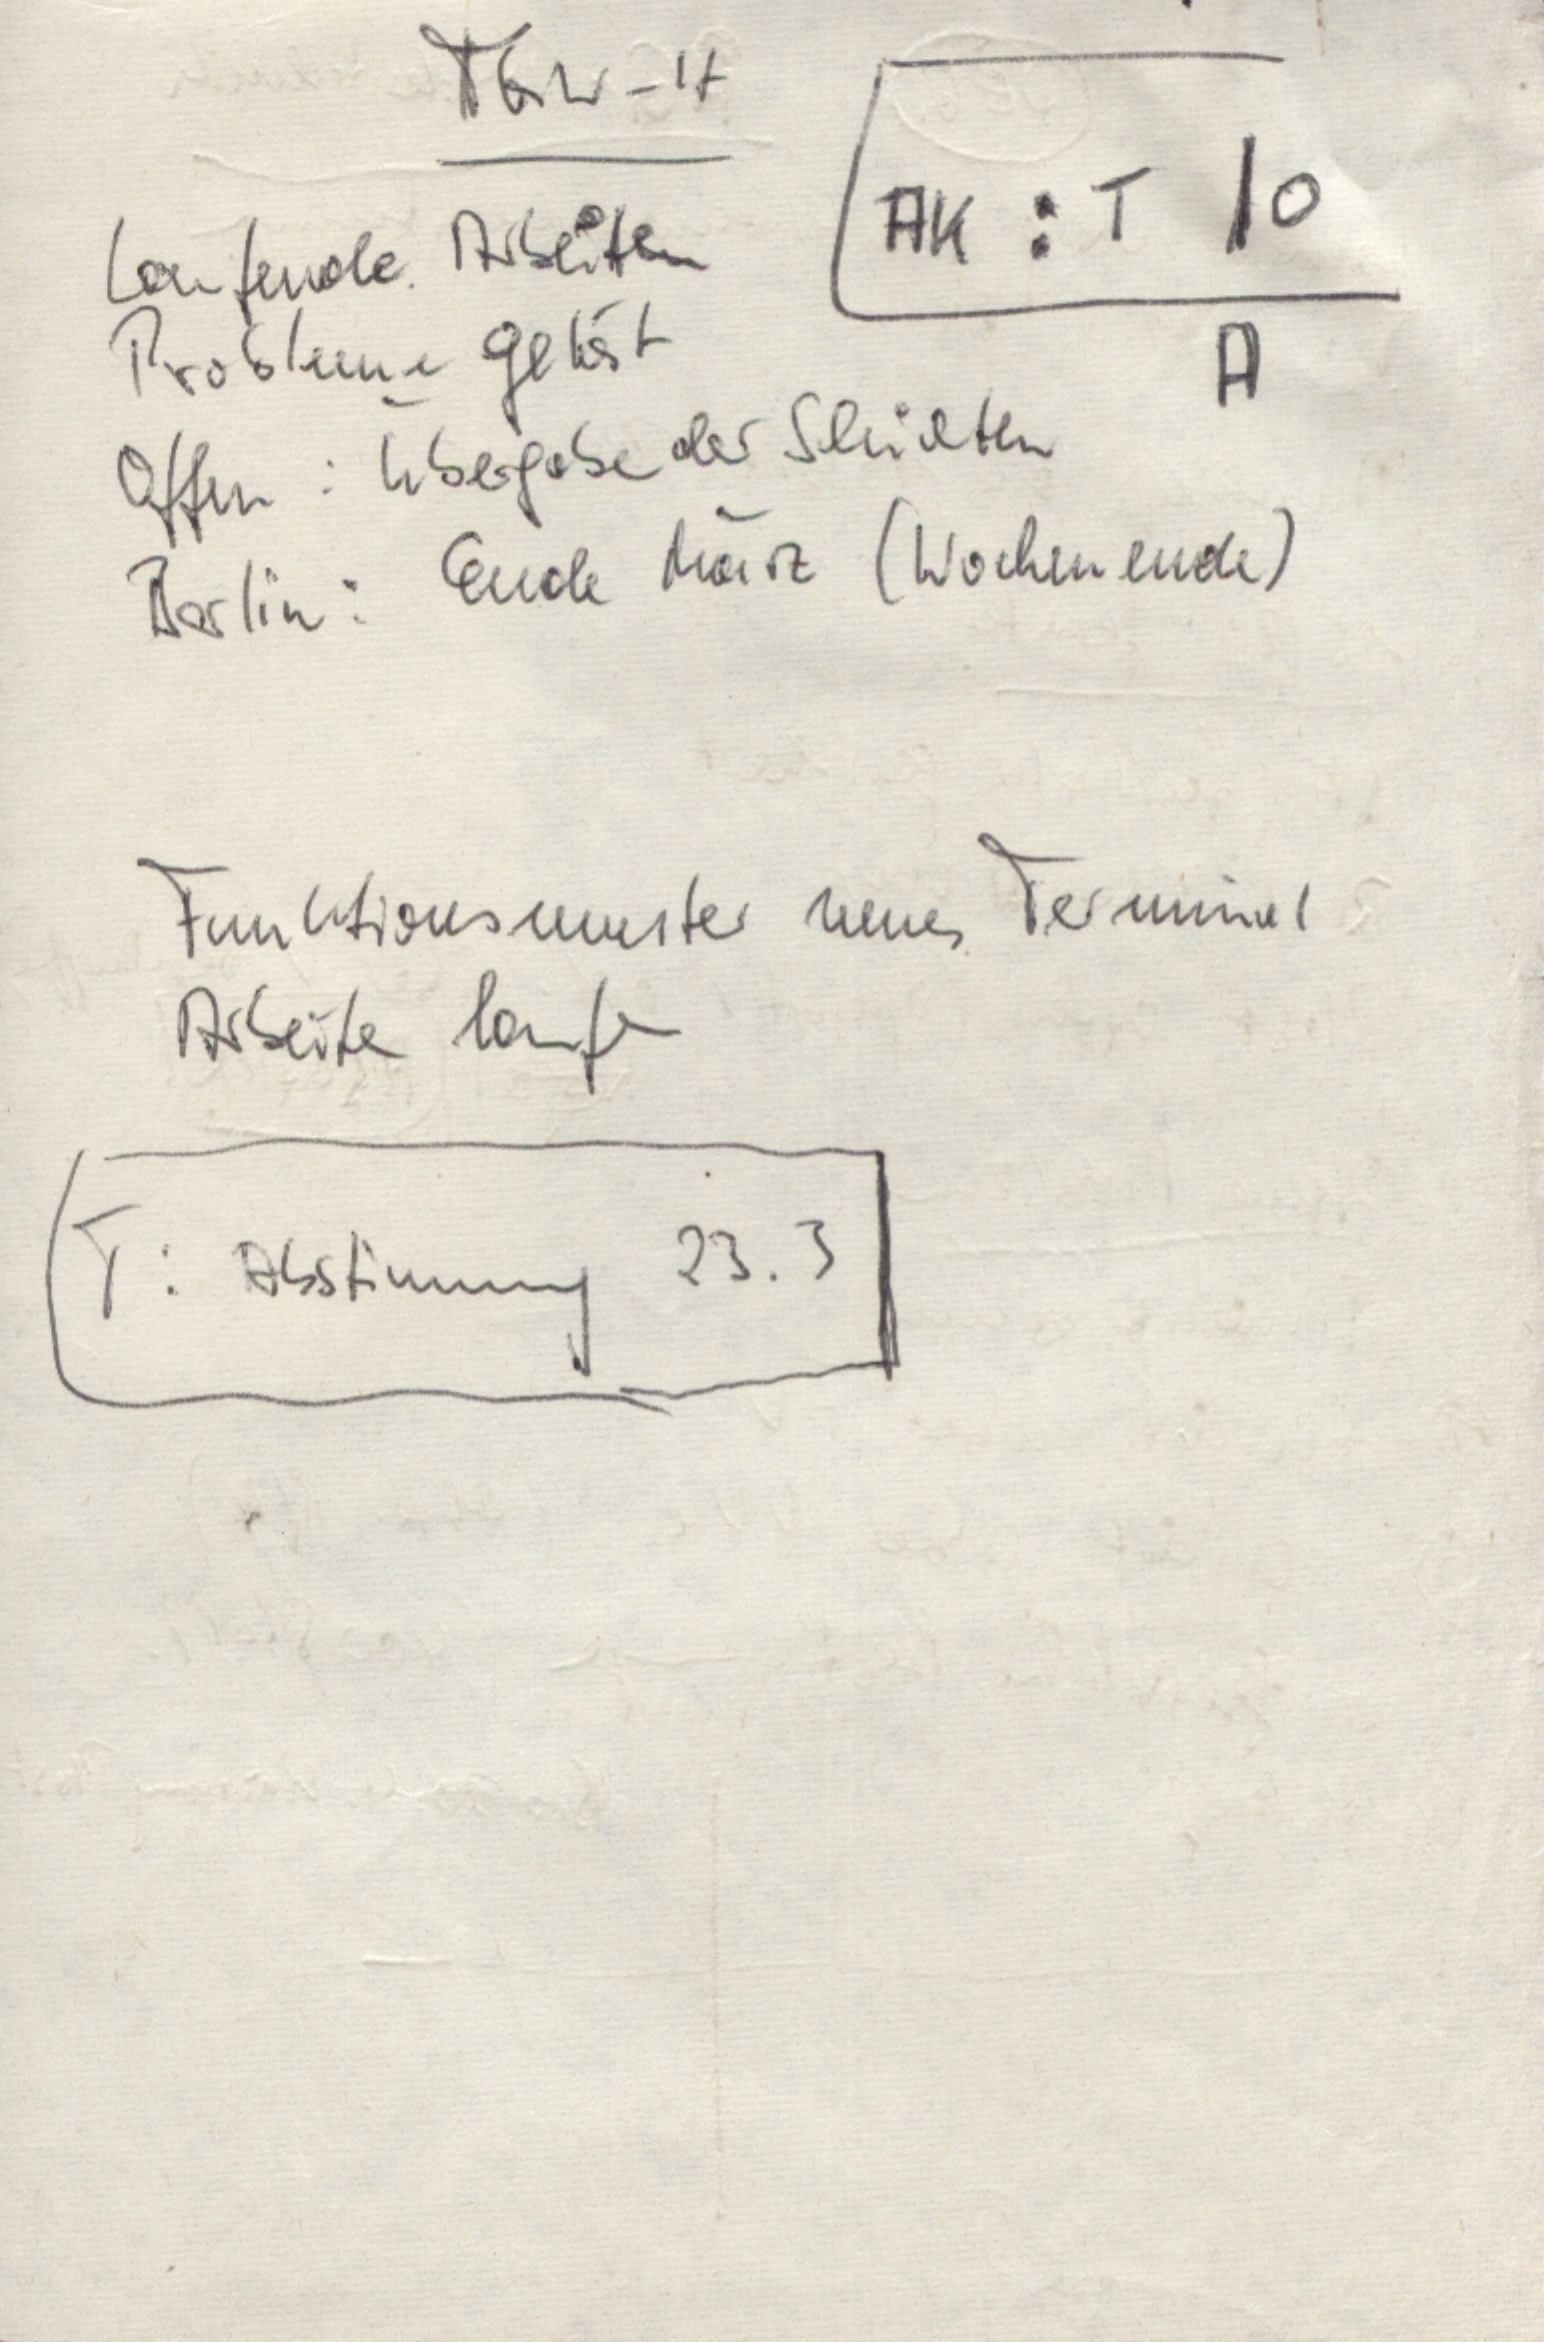 TGW-H
AK : T 10
A
Laufende Arbeiten
Probleme gelöst
Offen : Übergabe der
Berlin : Ende März (Wochenende)
Funktionsmuster neues Terminal
Arbeite laufe
T : Abstimmung 23.3